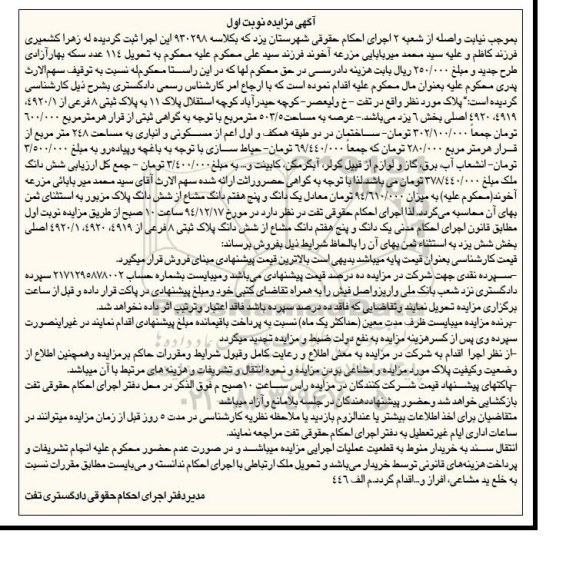 آگهی مزایده نوبت اول
بموجب نیابت واصله از شعبه ۲ اجرای احکام حقوقی شهرستان یزد که بکلاسه ۹۳۰۲۹۸ این اجرا ثبت گردیده له زهرا کشمیری
فرزند کاظم و علیه سید محمد میربابایی مزرعه آخوند فرزند سید علی محکوم علیه محکوم به تحویل ۱۱۴ عدد سکه بهارآزادی
طرح جدید و مبلغ ۲۵۰/۰۰۰ ریال بابت هزینه دادرسی در حق محکوم لها که در این راستا محکوم‌له نسبت به توقیف سهم‌الارث
پدری محکوم علیه بعنوان مال محکوم علیه اقدام نموده است که با ارجاع امر کارشناس رسمی دادگستری بشرح ذیل کارشناسی
گردیده است: "پلاک مورد نظر واقع در تفت - خ ولیعصر- کوچه حیدرآباد کوچه استقلال پلاک ۱۱ به پلاک ثبتی ۸ فرعی از ۴۹۲۰/۱،
۴۹۲۰، ۴۹۱۹ اصلی بخش ۶ یزد می‌باشد.- عرصه به مساحت ۵۰۳/۵ مترمربع با توجه به گواهی ثبتی از قرار هرمترمربع ۶۰۰/۰۰۰
تومان جمعاً ۳۰۲/۱۰۰/۰۰۰ تومان- ساختمان در دو طبقه همکف و اول اعم از مسکونی و انباری به مساحت ۲۴۸ متر مربع از
قرار هرمتر مربع ۲۸۰/۰۰۰ تومان که جمعاً ۶۹/۴۴۰/۰۰۰ تومان- حیاط سازی با توجه به باغچه و پیاده‌رو به مبلغ ۳/۵۰۰/۰۰۰
تومان- انشعاب آب، برق، گاز و لوازم از قبیل کولر، آبگرمکن، کابینت و.. به مبلغ ۳/۴۰۰/۰۰۰ تومان - جمع کل ارزیابی شش دانگ
ملک مبلغ ۳۷۸/۴۴۰/۰۰۰ تومان می باشد لذا با توجه به گواهی حصروراثت ارائه شده سهم الارث آقای سید محمد میر بابائی مزرعه
آخوند(محکوم علیه) به میزان ۹۴/۶۱۰/۰۰۰ تومان معادل یک دانگ و پنج هفتم دانگ مشاع از شش دانگ پلاک مزبور به استثنای ثمن
بهای آن محاسبه می‌گردد. لذا اجرای احکام حقوقی تفت در نظر دارد در مورخ ۹۴/۱۲/۱۷ ساعت ۱۰ صبح از طریق مزایده نوبت اول
مطابق قانون اجرای احکام مدنی یک دانگ و پنج هفتم دانگ مشاع از شش دانگ پلاک ثبتی ۸ فرعی از ۴۹۱۹، ۴۹۲۰، ۴۹۲۰/۱ اصلی
بخش شش یزد به استثناء ثمن بهای آن را بالحاظ شرایط ذیل بفروش برساند:
قیمت کارشناسی بعنوان قیمت پایه میباشد بدیهی است بالاترین قیمت پیشنهادی مبنای فروش قرار میگیرد.
-سپرده نقدی جهت شرکت در مزایده ده درصد قیمت پیشنهادی می‌باشد و میبایست بشماره حساب ۲۱۷۱۲۹۵۸۷۸۰۰۲ سپرده
دادگستری نزد شعب بانک ملی واریز و اصل فیش را به همراه تقاضای کتبی خود و مبلغ پیشنهادی در پاکت قرار داده و قبل از ساعت
برگزاری مزایده تحویل نمایند و تقاضایی که فاقد ده درصد سپرده باشد فاقد اعتبار و ترتیب اثر داده نخواهد شد.
-برنده مزایده میبایست ظرف مدت معین (حداکثر یک ماه) نسبت به پرداخت باقیمانده مبلغ پیشنهادی اقدام نمایند در غیراینصورت
سپرده وی پس از کسر هزینه مزایده به نفع دولت ضبط و مزایده تجدید میگردد
-از نظر اجرا اقدام به شرکت در مزایده به معنی اطلاع و رعایت کامل و قبول شرایط و مقررات حاکم برمزایده و همچنین اطلاع از
وضعیت و کیفیت پلاک مورد مزایده و مشاعی بودن مزایده و نحوه انتقال و تشریفات و هزینه های مرتبط با آن میباشد.
-پاکتهای پیشنهاد قیمت شرکت کنندگان در مزایده راس ساعت ۱۰ صبح م فوق الذکر در محل دفتر اجرای احکام حقوقی تفت
بازگشایی خواهد شد و حضور پیشنهاددهندگان در جلسه بلامانع و آزاد میباشد
متقاضیان برای اخذ اطلاعات بیشتر یا عندالزوم بازدید یا ملاحظه نظریه کارشناسی در مدت ۵ روز قبل از زمان مزایده میتوانند در
ساعات اداری ایام غیرتعطیل به دفتر اجرای احکام حقوقی تفت مراجعه نمایند.
انتقال سند به خریدار منوط به قطعیت عملیات اجرایی مزایده میباشد و در صورت عدم حضور محکوم علیه انجام تشریفات و
پرداخت هزینه‌های قانونی توسط خریدار می‌باشد و تحویل ملک ارتباطی با اجرای احکام نداسته و می‌بایست مطابق مقررات نسبت
به خلع ید مشاعی، افراز و...اقدام گردد.م الف ۴۴۶
مدیر دفتر اجرای احکام حقوقی دادگستری تفت